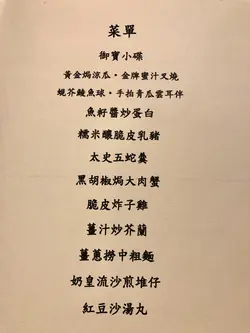 菜單
御寶小碟
黃金焗涼瓜•金牌蜜汁叉燒
蜆芥鯪魚球•手拍青瓜雲耳伴
魚籽醬炒蛋白
糯米釀脆皮乳豬
太史五蛇羹
黑胡椒焗大肉蟹
脆皮炸子雞
薑汁炒芥蘭
薑蔥撈中粗麵
奶皇流沙煎堆仔
紅豆沙湯丸